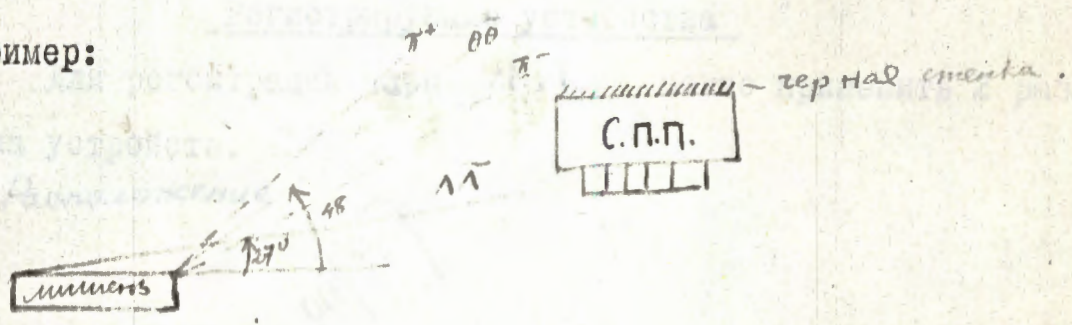 ример:
π⁺ θθ̄ π⁻
черная стенка.
С.П.П.
ΛΛ̄
48
27°
мишень